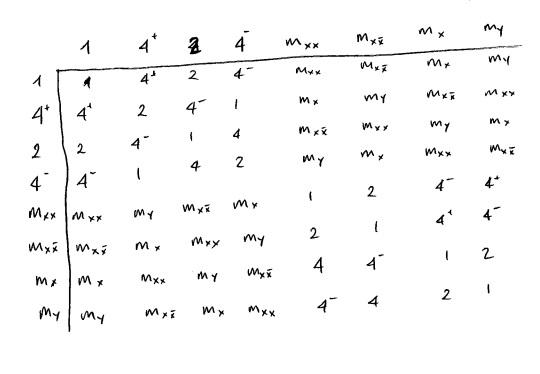 1 4⁺ 2 4⁻ m_xx m_xx̄ m_x m_y
1 1 4⁺ 2 4⁻ m_xx m_xx̄ m_x m_y
4⁺ 4⁺ 2 4⁻ 1 m_x m_y m_xx̄ m_xx
2 2 4⁻ 1 4 m_xx̄ m_xx m_y m_x
4⁻ 4⁻ 1 4 2 m_y m_x m_xx m_xx̄
m_xx m_xx m_y m_xx̄ m_x 1 2 4⁻ 4⁺
m_xx̄ m_xx̄ m_x m_xx m_y 2 1 4⁺ 4⁻
m_x m_x m_xx m_y m_xx̄ 4 4⁻ 1 2
m_y m_y m_xx̄ m_x m_xx 4⁻ 4 2 1